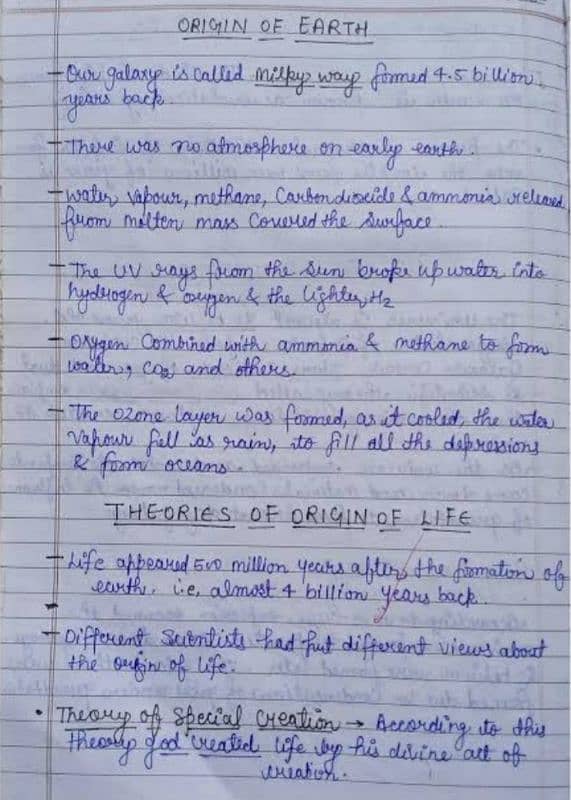 ORIGIN OF EARTH
- Our galaxy is called milky way formed 4.5 billion
years back
- There was no atmosphere on early earth.
- Water vapour, methane, Carbondioxide & ammonia released
from molten mass Covered the surface.
- The UV rays from the sun broke up water into
hydrogen & oxygen & the lighter H2
- Oxygen Combined with ammonia & methane to form
water, CO2 and others.
- The Ozone layer was formed, as it cooled, the water
Vapour fell as rain, to fill all the depressions
& form oceans.
THEORIES OF ORIGIN OF LIFE
- Life appeared 500 million years after the formation of
earth. i.e, almost 4 billion years back.
- Different Scientists had put different views about
the origin of life.
• Theory of Special Creation → According to this
theory god created life by his divine act of
creation.